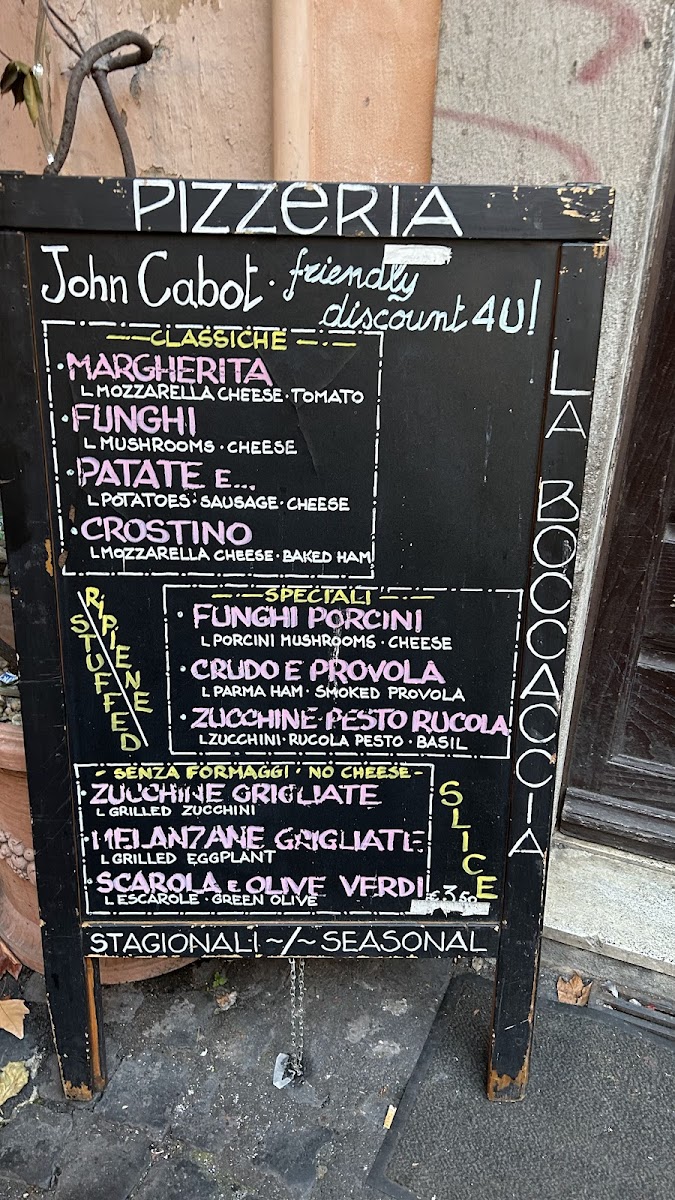 PIZZERIA
John Cabot · friendly
discount 4U!
CLASSICHE
· MARGHERITA
L MOZZARELLA CHEESE · TOMATO
· FUNGHI
L MUSHROOMS · CHEESE
· PATATE E...
L POTATOES · SAUSAGE · CHEESE
· CROSTINO
L MOZZARELLA CHEESE · BAKED HAM
RIPIENE
STUFFED
SPECIALI
· FUNGHI PORCINI
L PORCINI MUSHROOMS · CHEESE
· CRUDO E PROVOLA
L PARMA HAM · SMOKED PROVOLA
· ZUCCHINE PESTO RUCOLA
L ZUCCHINI · RUCOLA PESTO · BASIL
- SENZA FORMAGGI · NO CHEESE -
· ZUCCHINE GRIGLIATE
L GRILLED ZUCCHINI
· MELANZANE GRIGLIATE
L GRILLED EGGPLANT
· SCAROLA E OLIVE VERDI
L ESCAROLE · GREEN OLIVE
SLICE
€ 3,50
STAGIONALI ~/~ SEASONAL
LA BOCCACCIA